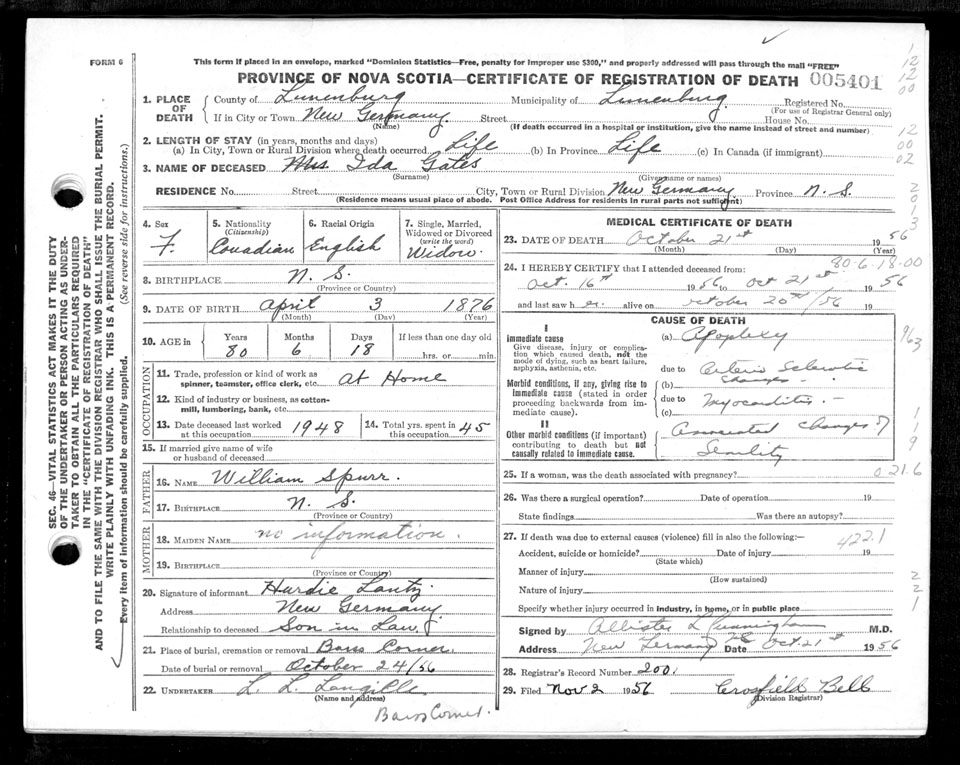 FORM 6
This form if placed in an envelope, marked "Dominion Statistics—Free, penalty for improper use $300," and properly addressed will pass through the mail "FREE"
PROVINCE OF NOVA SCOTIA—CERTIFICATE OF REGISTRATION OF DEATH 005401
1. PLACE OF DEATH County of Lunenburg Municipality of Lunenburg Registered No.
(For use of Registrar General only)
If in City or Town New Germany Street House No.
(Name) (If death occurred in a hospital or institution, give the name instead of street and number)
2. LENGTH OF STAY (in years, months and days)
(a) In City, Town or Rural Division where death occurred Life (b) In Province Life (c) In Canada (if immigrant)
3. NAME OF DECEASED Mrs Ida Gates
(Surname) (Given name or names)
RESIDENCE No. Street City, Town or Rural Division New Germany Province N. S.
(Residence means usual place of abode. Post Office Address for residents in rural parts not sufficient)
4. Sex F.
5. Nationality (Citizenship) Canadian
6. Racial Origin English
7. Single, Married, Widowed or Divorced (write the word) Widow.
8. BIRTHPLACE N. S.
(Province or Country)
9. DATE OF BIRTH April 3 1876
(Month) (Day) (Year)
10. AGE in Years Months Days If less than one day old
80 6 18 hrs. or min.
OCCUPATION
11. Trade, profession or kind of work as spinner, teamster, office clerk, etc. At Home
12. Kind of industry or business, as cotton-mill, lumbering, bank, etc.
13. Date deceased last worked at this occupation 1948
14. Total yrs. spent in this occupation 45
15. If married give name of wife or husband of deceased
FATHER
16. NAME William Spurr.
17. BIRTHPLACE N. S.
(Province or Country)
MOTHER
18. MAIDEN NAME no information.
19. BIRTHPLACE
(Province or Country)
20. Signature of informant Hardie Lantz
Address New Germany
Relationship to deceased Son in Law
21. Place of burial, cremation or removal Barss Corner.
Date of burial or removal October 24/56
22. UNDERTAKER L. L. Langille
(Name and address)
Barss Corner.
MEDICAL CERTIFICATE OF DEATH
23. DATE OF DEATH October 21st 1956
(Month) (Day) (Year)
80-6-18-00
24. I HEREBY CERTIFY that I attended deceased from:
Oct. 16th 1956 to Oct 21st 1956
and last saw her alive on October 20th /56 19
CAUSE OF DEATH
I
Immediate cause
Give disease, injury or complication which caused death, not the mode of dying, such as heart failure, asphyxia, asthenia, etc.
(a) Apoplexy
due to Arterio Sclerotic
(b) Changes -
Morbid conditions, if any, giving rise to immediate cause (stated in order proceeding backwards from immediate cause).
due to Myocarditis -
(c)
II
Other morbid conditions (if important) contributing to death but not causally related to immediate cause.
Associated changes of
Senility
25. If a woman, was the death associated with pregnancy?
021.6
26. Was there a surgical operation? Date of operation 19
State findings Was there an autopsy?
27. If death was due to external causes (violence) fill in also the following:—
422.1
Accident, suicide or homicide? Date of injury 19
(State which)
Manner of injury
(How sustained)
Nature of injury
Specify whether injury occurred in industry, in home, or in public place
Signed by Allister L Cunningham M.D.
Address New Germany NS Date Oct. 21st 1956
28. Registrar's Record Number 200.
29. Filed Nov 2 1956 Crosfield Bell
(Division Registrar)
SEC. 46—VITAL STATISTICS ACT MAKES IT THE DUTY
OF THE UNDERTAKER OR PERSON ACTING AS UNDER-
TAKER TO OBTAIN ALL THE PARTICULARS REQUIRED
IN THE "CERTIFICATE OF REGISTRATION OF DEATH"
AND TO FILE THE SAME WITH THE DIVISION REGISTRAR WHO SHALL ISSUE THE BURIAL PERMIT.
WRITE PLAINLY WITH UNFADING INK. THIS IS A PERMANENT RECORD.
Every item of information should be carefully supplied. (See reverse side for instructions.)
1
12
12
00
12
00
02
2
0
1
3
963
1
1
9
2
2
1